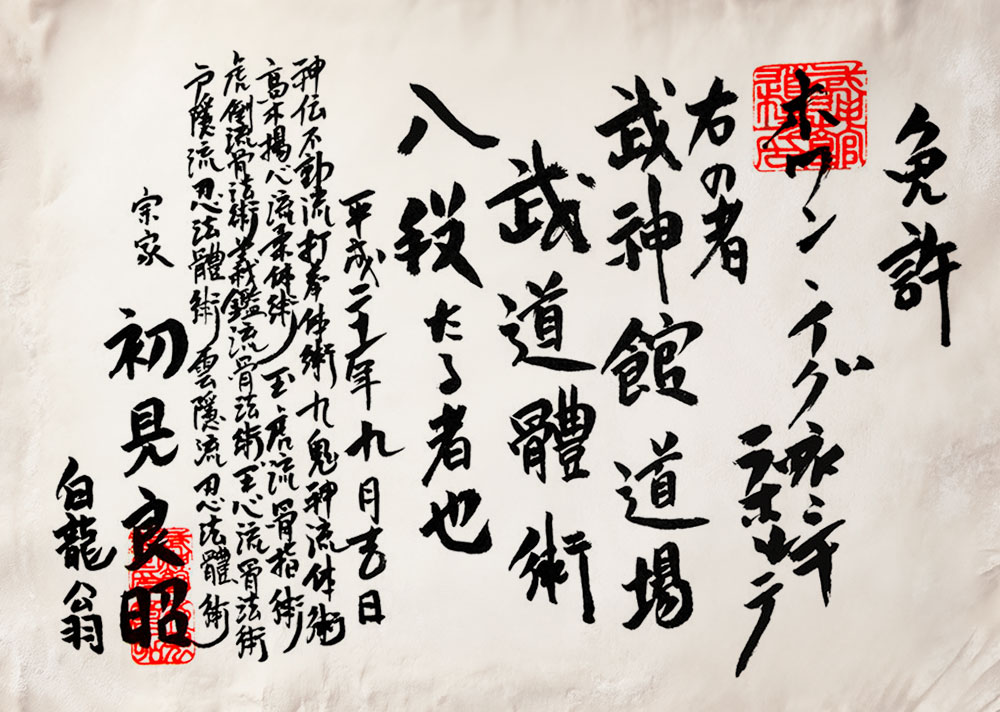 免許
ホワン イグ
右の者
武神館道場
武道體術
八段たる者也
平成二十一年九月吉日
神伝不動流打拳体術 九鬼神流体術
高木揚心流柔体術 玉虎流骨指術
虎倒流骨法術 義鑑流骨法術 玉心流骨法術
戸隠流忍法體術 雲隠流忍法體術
宗家 初見良昭
白龍翁